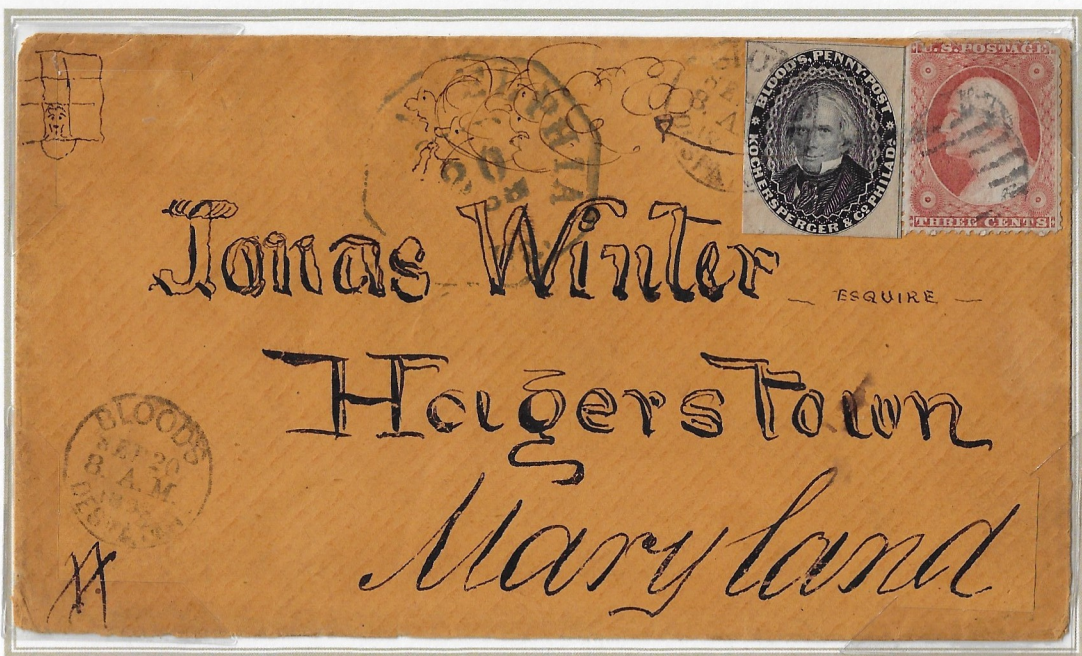 BLOOD'S, PENNY-POST
KOCHERSPERGER & CO. PHILADA
U.S. POSTAGE
THREE CENTS
Jonas Winter
ESQUIRE
HagersTown
Maryland
BLOOD'S
SEP 20
8. A.M.